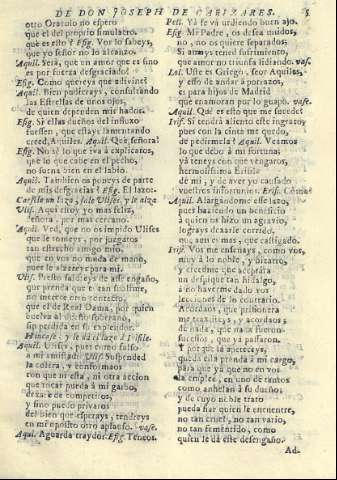 DE DON JOSEPH DE CAÑIZARES. 5
otro Oraculo no espero
que el del proprio simulacro.
què es esto? Efig. Vos lo sabeys,
que yo señor no lo alcanço.
Aquil. Serà, que un amor que es sino
es por fuerza desgraciado!
Efig. Como quereys que adivine?
Aquil. Bien pudierays, consultando
las Estrellas de unos ojos,
de quien dependen mis hados.
Efig. Si ellas dueños del influxo
fuessen, que estays lamentando
creed, Aquiles. Aquil. Què, señora?
Efig. No sè lo que iva à explicaros,
que lo que cabe en el pecho,
no suena bien en el labio.
Aquil. Tambien os pareys de parte
de mis desgracias? Efig. El lazo.
Caesele un lazo, sale Ulises, y le alza
Ulis. Aqui estoy yo mas feliz,
señora, por mas cercano.
Aquil. Ved, que no os impido Ulises
que le tomeys, por juzgaros
tan estrecho amigo mio,
que en vos no muda de mano,
pues le alzareys para mi.
Ulis. Presto saldreys de esse engaño,
que prenda que es tan sublime,
no merece otro contacto,
que el de Real Dama, por quien
buelva al dueño soberano,
sin perdida en su explendor.
Aquil. Ulises, pues como falso
à mi amistad? Ulis. Suspended
la colera, y conformaos
con que ni esta, ni otra accion
que tocar pueda à mi garbo,
dexarè de competiros,
y sino puedo privaros
del bien que esperays, tendreys
en mi oposito otro aplauso. vase.
Aqui. Aguarda traydor. Efig. Teneos.
Peti. Ya se và urdiendo buen ajo.
Efig. Mi Padre, os dexa unidos,
no, no os quiere separados;
Si amays tened sufrimiento,
que amor no triunfa lidiando. vase.
Lel. Ulises es Griego, seor Aquiles,
y esso de andar à porrazos,
es para hijos de Madrid
que enamoran por lo guapo. vase.
Aquil. Què es esto que me sucede?
Iris. Si tendrà aliento este ingrato,
pues con la cinta me quedo,
de pedirmela? Aquil. Veamos
lo que debo à mi fortuna,
yà teneys con que vengaros,
hermosissima Erisile
de mi, y de aver yo causado
vuestros infortunios. Eris. Còmo?
Aquil. Alargandome esse lazo,
pues haziendo un beneficio
à quien os hizo un agravio,
lograys dexarle corrido,
que aun es mas, que castigado.
Eris. Vos me enseñays, como vos,
muy à lo noble, y bizarro,
y creedme que aceptàra
un despique tan hidalgo,
à no haverme dado vos
lecciones de lo contrario.
Acordaos, que prisionera
me traxisteys, y acordaos;
de nada, que nada fueron
successos, que yà passaron.
pues que yà no en vos
la empleè, en uno de tantos
como anhelan à su dueño,
y de cuyo noble trato
pueda fiar quien le encuentre,
no tan cruel, no tan vario,
no tan fementido, como
quien le dà este desengaño.
Ad-